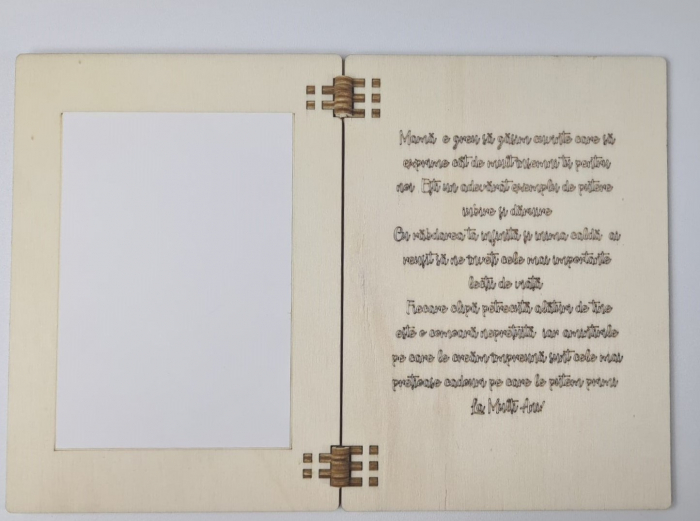 Mamă e greu să găsim cuvinte care să
exprime cât de mult însemni tu pentru
noi Ești un adevărat exemplu de putere
iubire și dăruire
Cu răbdarea ta infinită și inima caldă ai
reușit să ne înveți cele mai importante
lecții de viață
Fiecare clipă petrecută alături de tine
este o comoară neprețuită iar amintirile
pe care le creăm împreună sunt cele mai
prețioase cadouri pe care le putem primi
La Mulți Ani